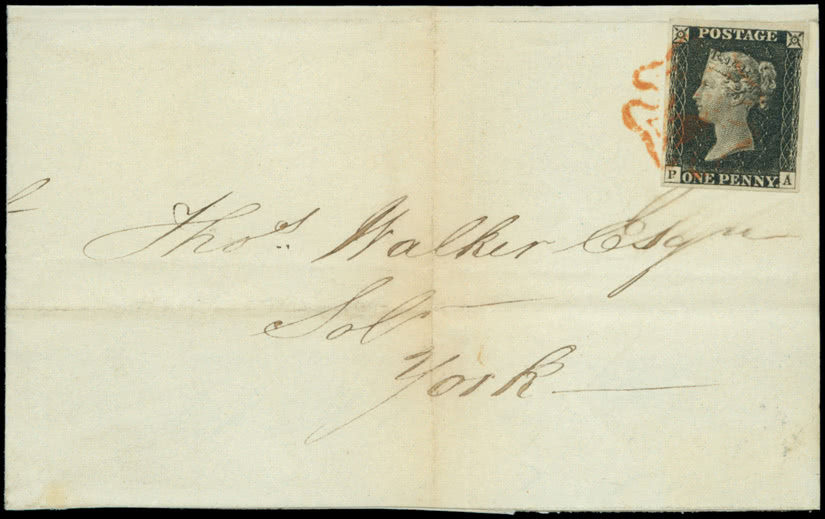 POSTAGE
P ONE PENNY. A
Thos. Walker Esqre
Solr
York